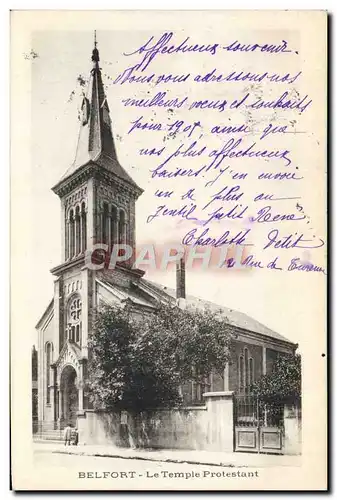 Affectueux souvenir.
Nous vous adressons nos
meilleurs vœux et souhaits
pour 1907, ainsi que
nos plus affectueux
baisers. J'en envoie
un de plus au
gentil petit René
Charlotte Petit
rue de
CARTHAPHIL
BELFORT - Le Temple Protestant